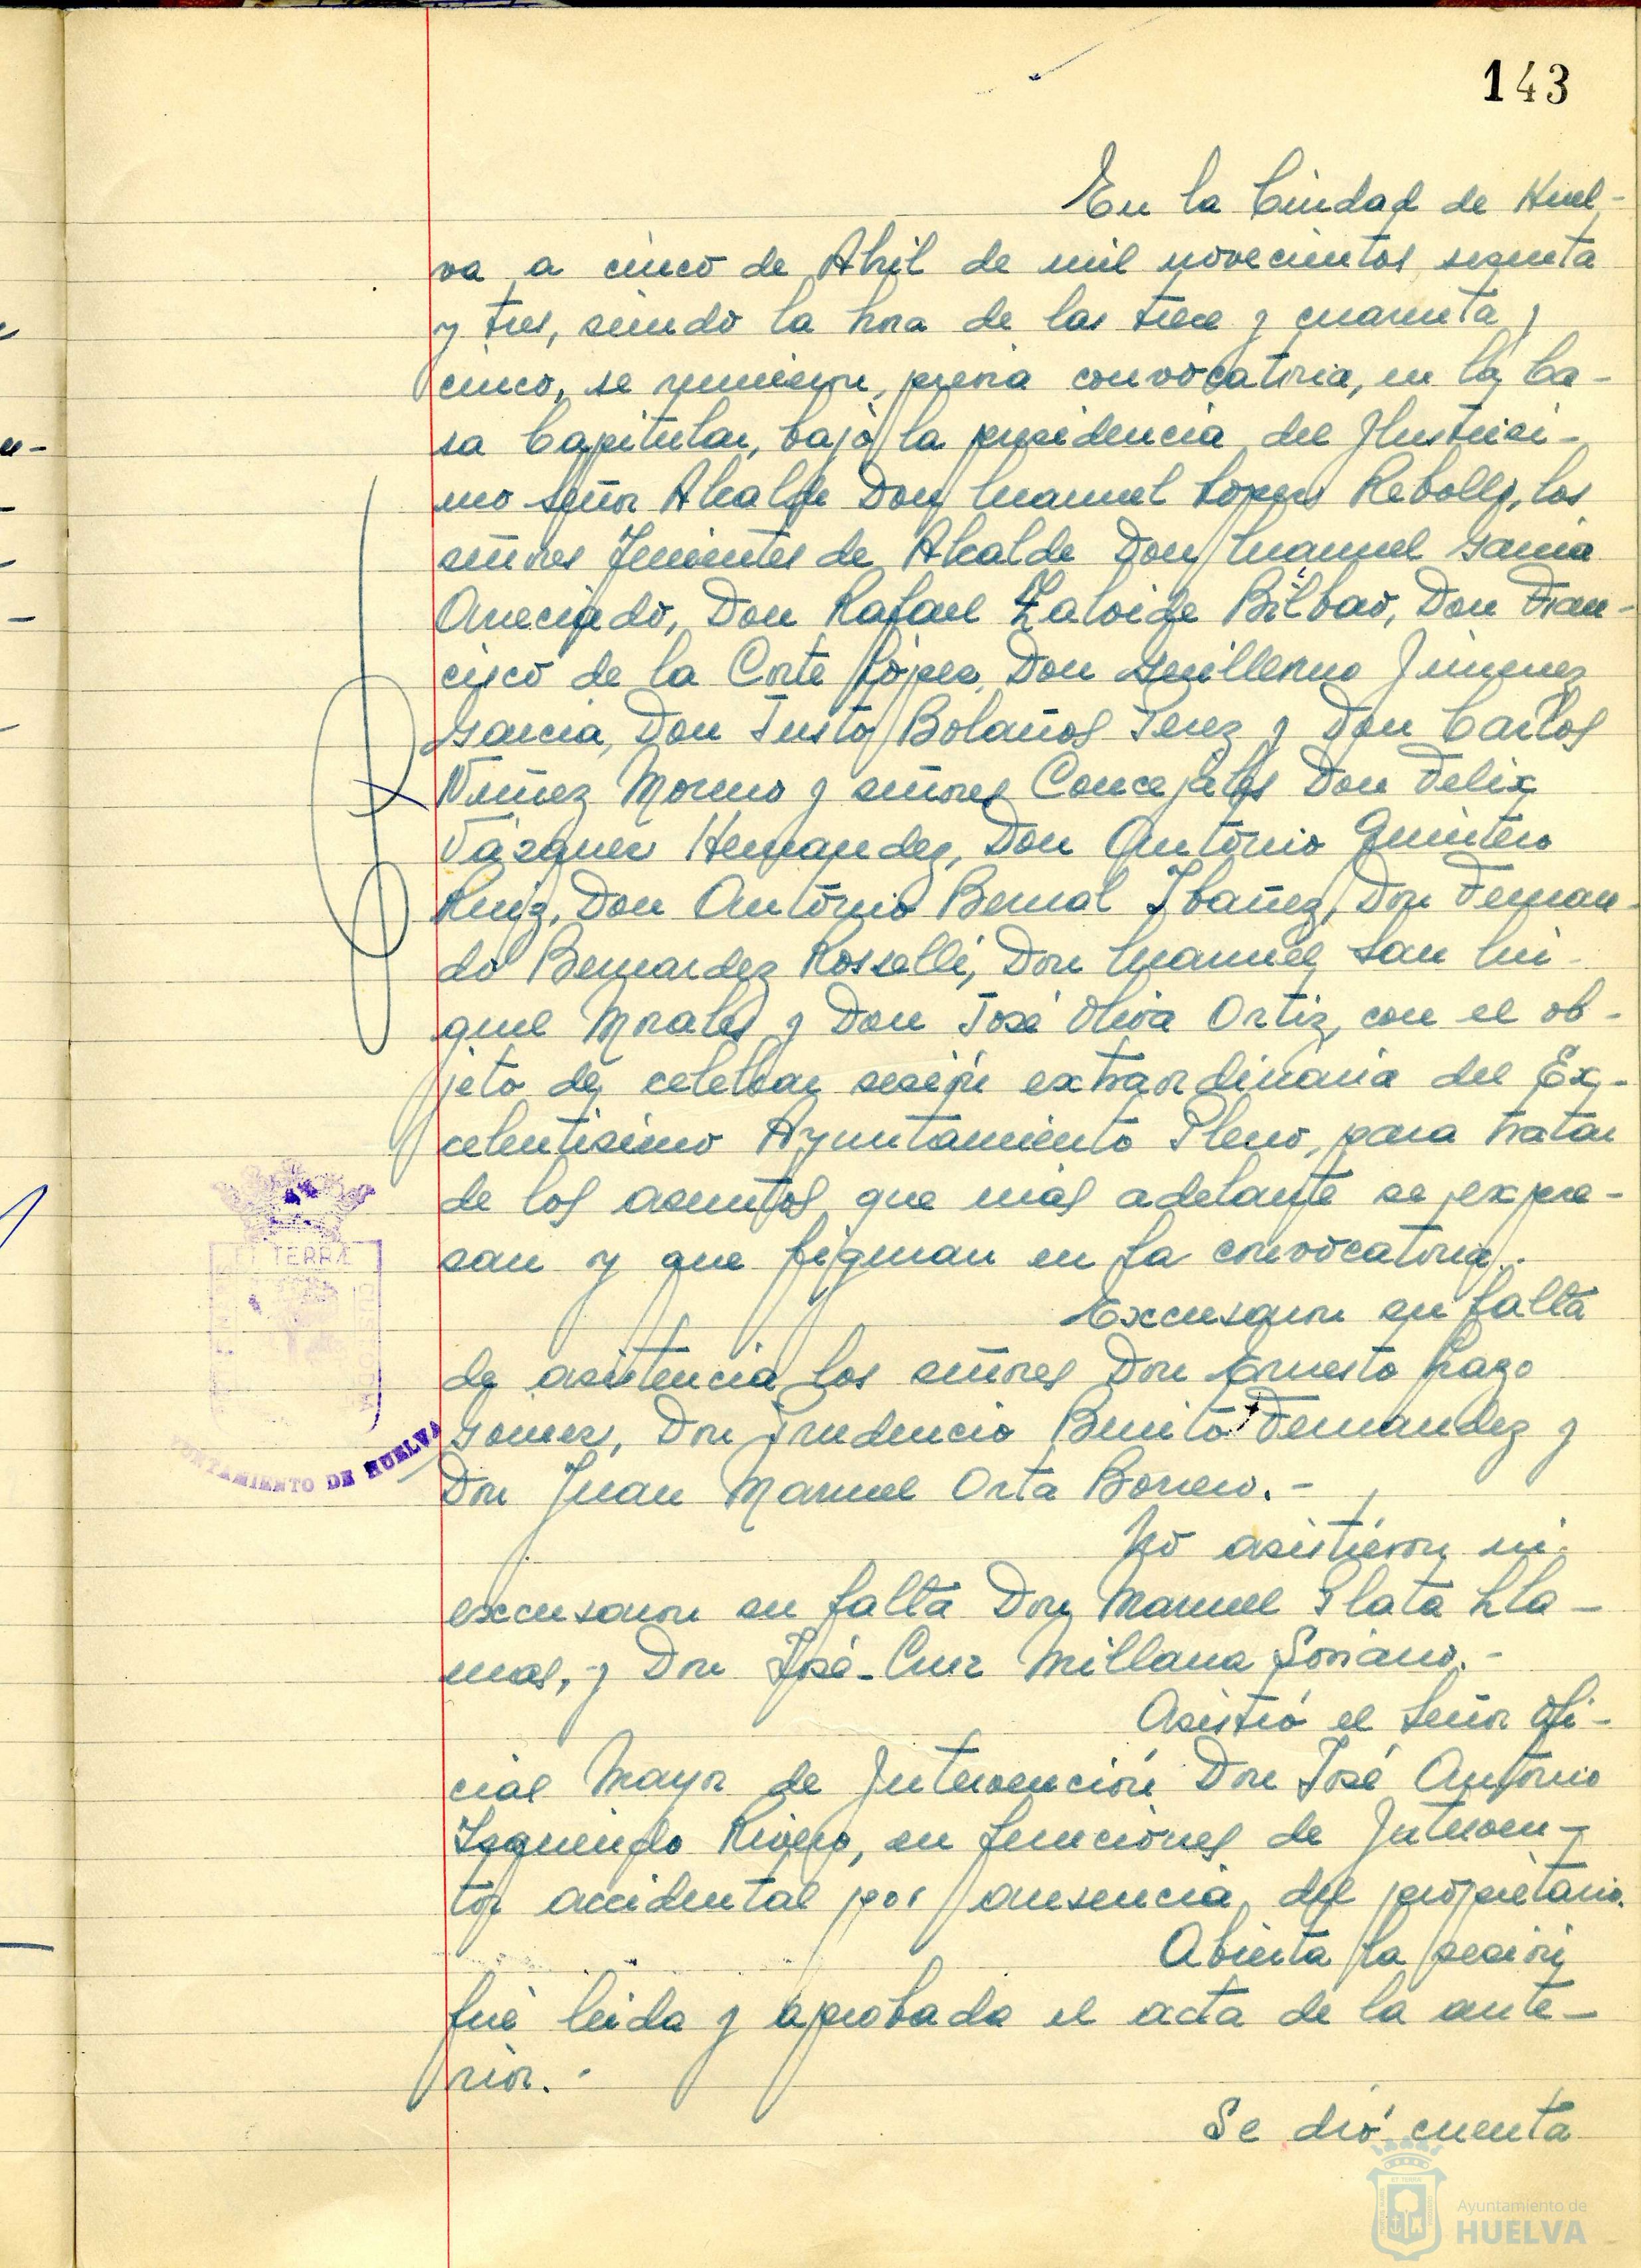 143
En la Ciudad de Huel-
va a cinco de Abril de mil novecientos sesenta
y tres, siendo la hora de las trece y cuarenta y
cinco, se reunieron, previa convocatoria, en la Ca-
sa Capitular, bajo la presidencia del Ilustrisi-
mo señor Alcalde Don Manuel López Rebollo, los
señores Tenientes de Alcalde Don Manuel Garcia
Don Rafael Zalvide Bilbao, Don Fran-
cisco de la Corte López, Don Guillermo Jimenez
Garcia, Don Justo Bolaños Perez y Don Carlos
Nuñez Moreno y señores Concejales Don Felix
Vázquez Hernandez, Don Antonio Quintero
Ruiz, Don Antonio Bernal Ibañez, Don Fernan-
do Bernardez Rosselli, Don Manuel San Mi-
guel Morales y Don José Oliva Ortiz, con el ob-
jeto de celebrar sesión extraordinaria del Ex-
celentisimo Ayuntamiento Pleno, para tratar
de los asuntos que mas adelante se expre-
san y que figuran en la convocatoria.-
Excusaron su falta
de asistencia los señores Don Ernesto Lazo
Gómez, Don Prudencio Benito Fernandez y
Don Juan Manuel Orta Borrero.-
No asistieron ni
excusaron su falta Don Manuel Plata Lla-
mas, y Don José-Cruz Millana Soriano.-
Asistió el Señor Ofi-
cial Mayor de Intervención Don José Antonio
Izquierdo Rivero, en funciones de Interven-
tor accidental por ausencia del propietario.
Abierta la sesión
fué leida y aprobada el acta de la ante-
rior.-
Se dió cuenta
ET TERRÆ
CUSTODIA
YUNTAMIENTO DE HUELVA
Ayuntamiento de
HUELVA